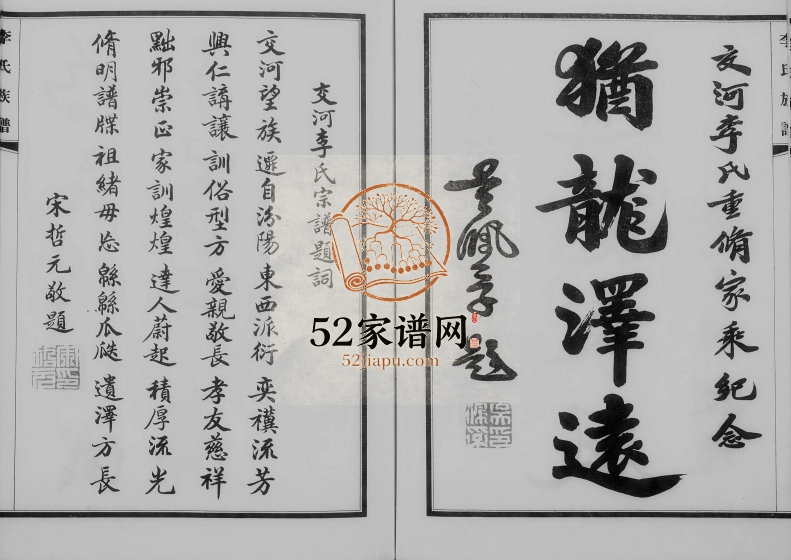 李氏族譜
交河李氏重脩家乘紀念
猶龍澤遠
吳佩孚題
交河李氏宗譜題詞
交河望族遷自汾陽東西派衍奕禩流芳
興仁講讓訓俗型方愛親敬長孝友慈祥
黜邪崇正家訓煌煌達人蔚起積厚流光
脩明譜牒祖緒毋忘緜緜瓜瓞遺澤方長
宋哲元敬題
李氏族譜
52家谱网
52jiapu.com